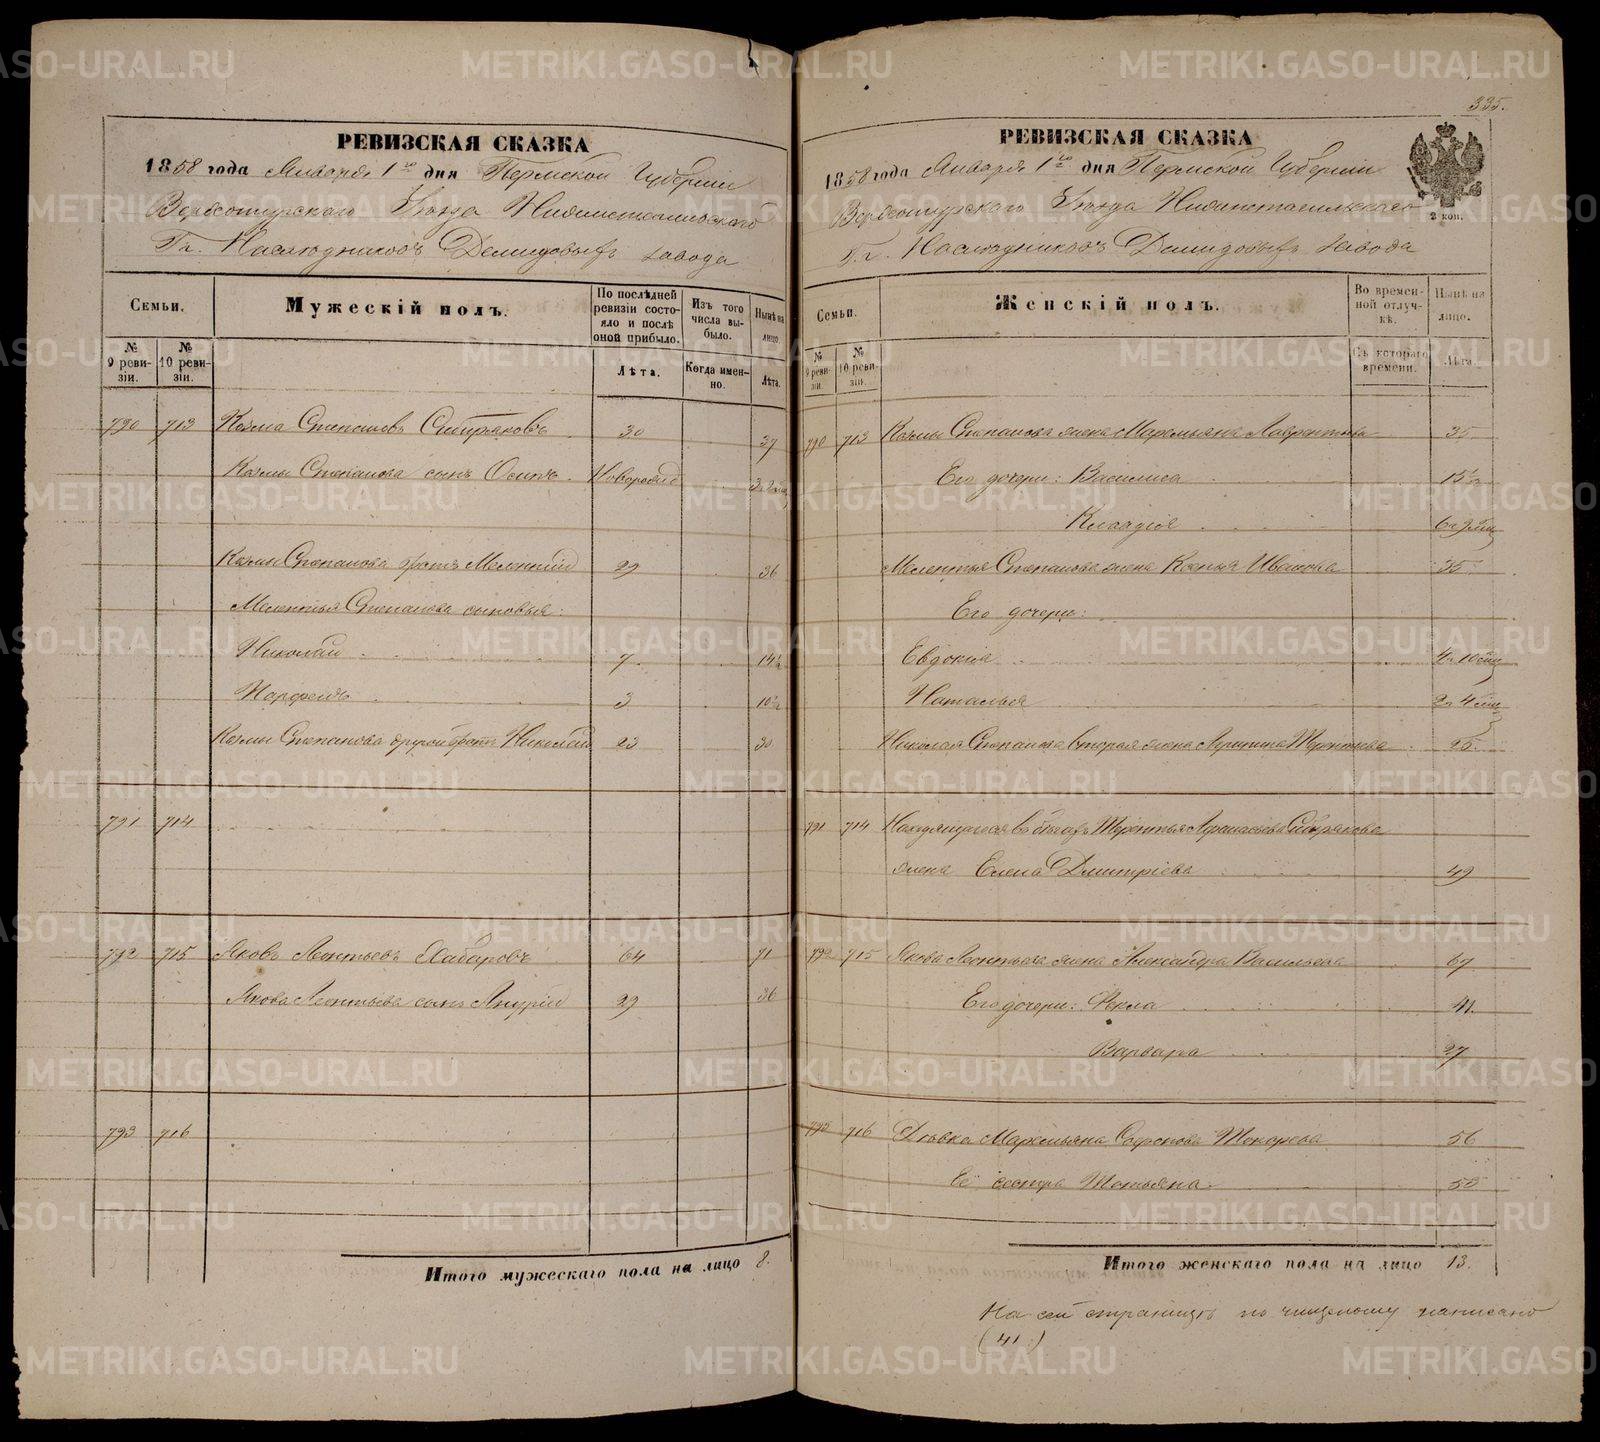 РЕВИЗСКАЯ СКАЗКА
1858 года Января 1го дня Пермской Губерніи
Верхотурскаго Уѣзда Нижнетагильскаго
Гг. Наслѣдниковъ Демидовыхъ завода
Семьи.
Мужескій полъ.
По послѣдней ревизіи состояло и послѣ оной прибыло.
Изъ того числа выбыло.
Нынѣ на лицо.
№ 9 ревизіи.
№ 10 ревизіи.
Лѣта.
Когда именно.
Лѣта.
790 713 Козма Степановъ Сибряковъ 30 37
Козмы Степанова сынъ Осипъ Новорожд
Козмы Степанова братъ Мелентий 29 36
Мелентья Степанова сыновья:
Николай 7 14½
Парфенъ 3 10½
Козмы Степанова другой братъ Николай 23 30
791 714
792 715 Яковъ Леонтьевъ Хабаровъ 64 71
Якова Леонтьева сынъ 29 36
793 716
Итого мужескаго пола на лицо 8.
335.
РЕВИЗСКАЯ СКАЗКА
1858 года Января 1го дня Пермской Губерніи
Верхотурскаго Уѣзда Нижнетагильскаго
Гг. Наслѣдниковъ Демидовыхъ завода
2 коп.
Семьи.
Женскій полъ.
Во временной отлучкѣ.
Нынѣ на лицо.
№ 9 ревизіи.
№ 10 ревизіи.
Съ котораго времени.
Лѣта.
790 713 Козмы Степанова жена Маремьяна Лаврентьева 35
Его дочери: Василиса 15½
Клавдія 6 г 9 мц
Мелентья Степанова жена Ксенья Иванова 35
Его дочери:
Евдокія 4 г 10 мц
Наталья 2 г 4 мц
Николая Степанова вторая жена Терентьева 25
791 714 Находящагося въ бѣгахъ Терентья Афанасьева Сибрякова
жена Елена Дмитріева 49
792 715 Якова Леонтьева жена Александра Васильева 67
Его дочери: Фекла 41
Варвара 27
793 716 Дѣвка Маремьяна Софронова Токарева 56
Её сестра Татьяна 55
Итого женскаго пола на лицо 13.
На сей страницѣ по чищеному написано
(41)
METRIKI.GASO-URAL.RU